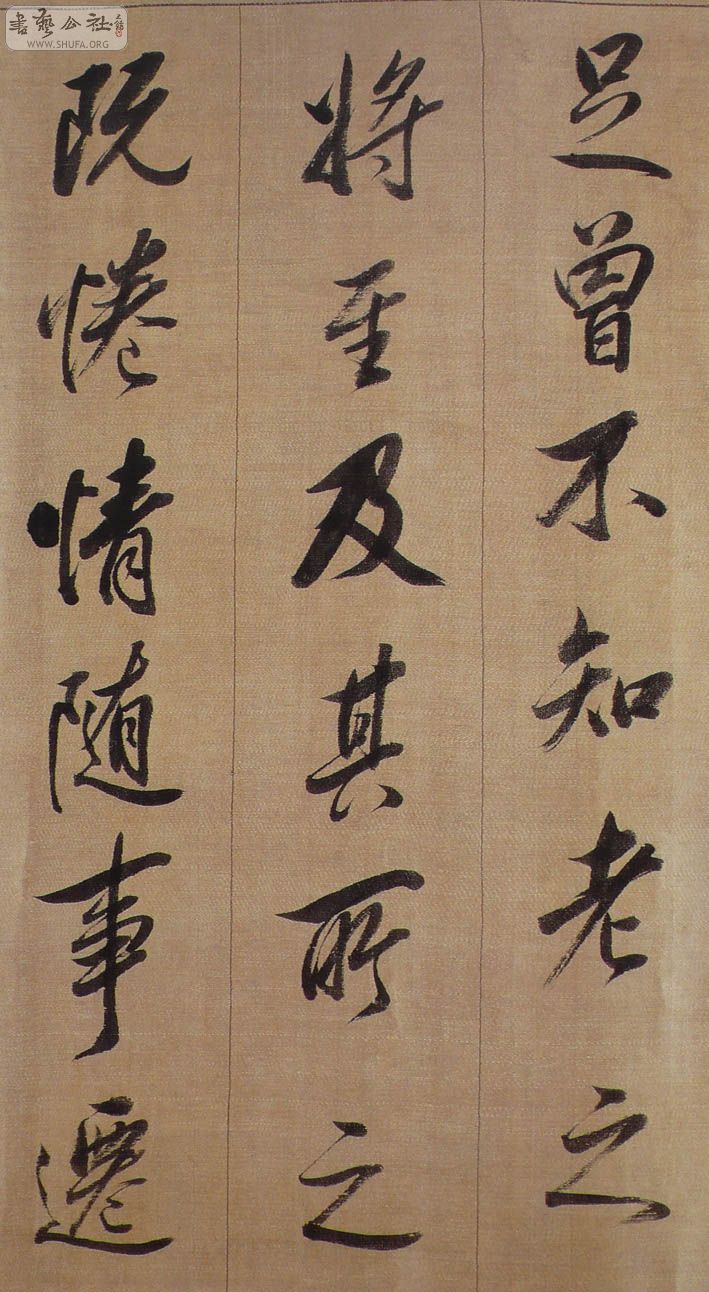 足曾不知老之
将至及其所之
既惓情随事遷
書藝公社
WWW.SHUFA.ORG